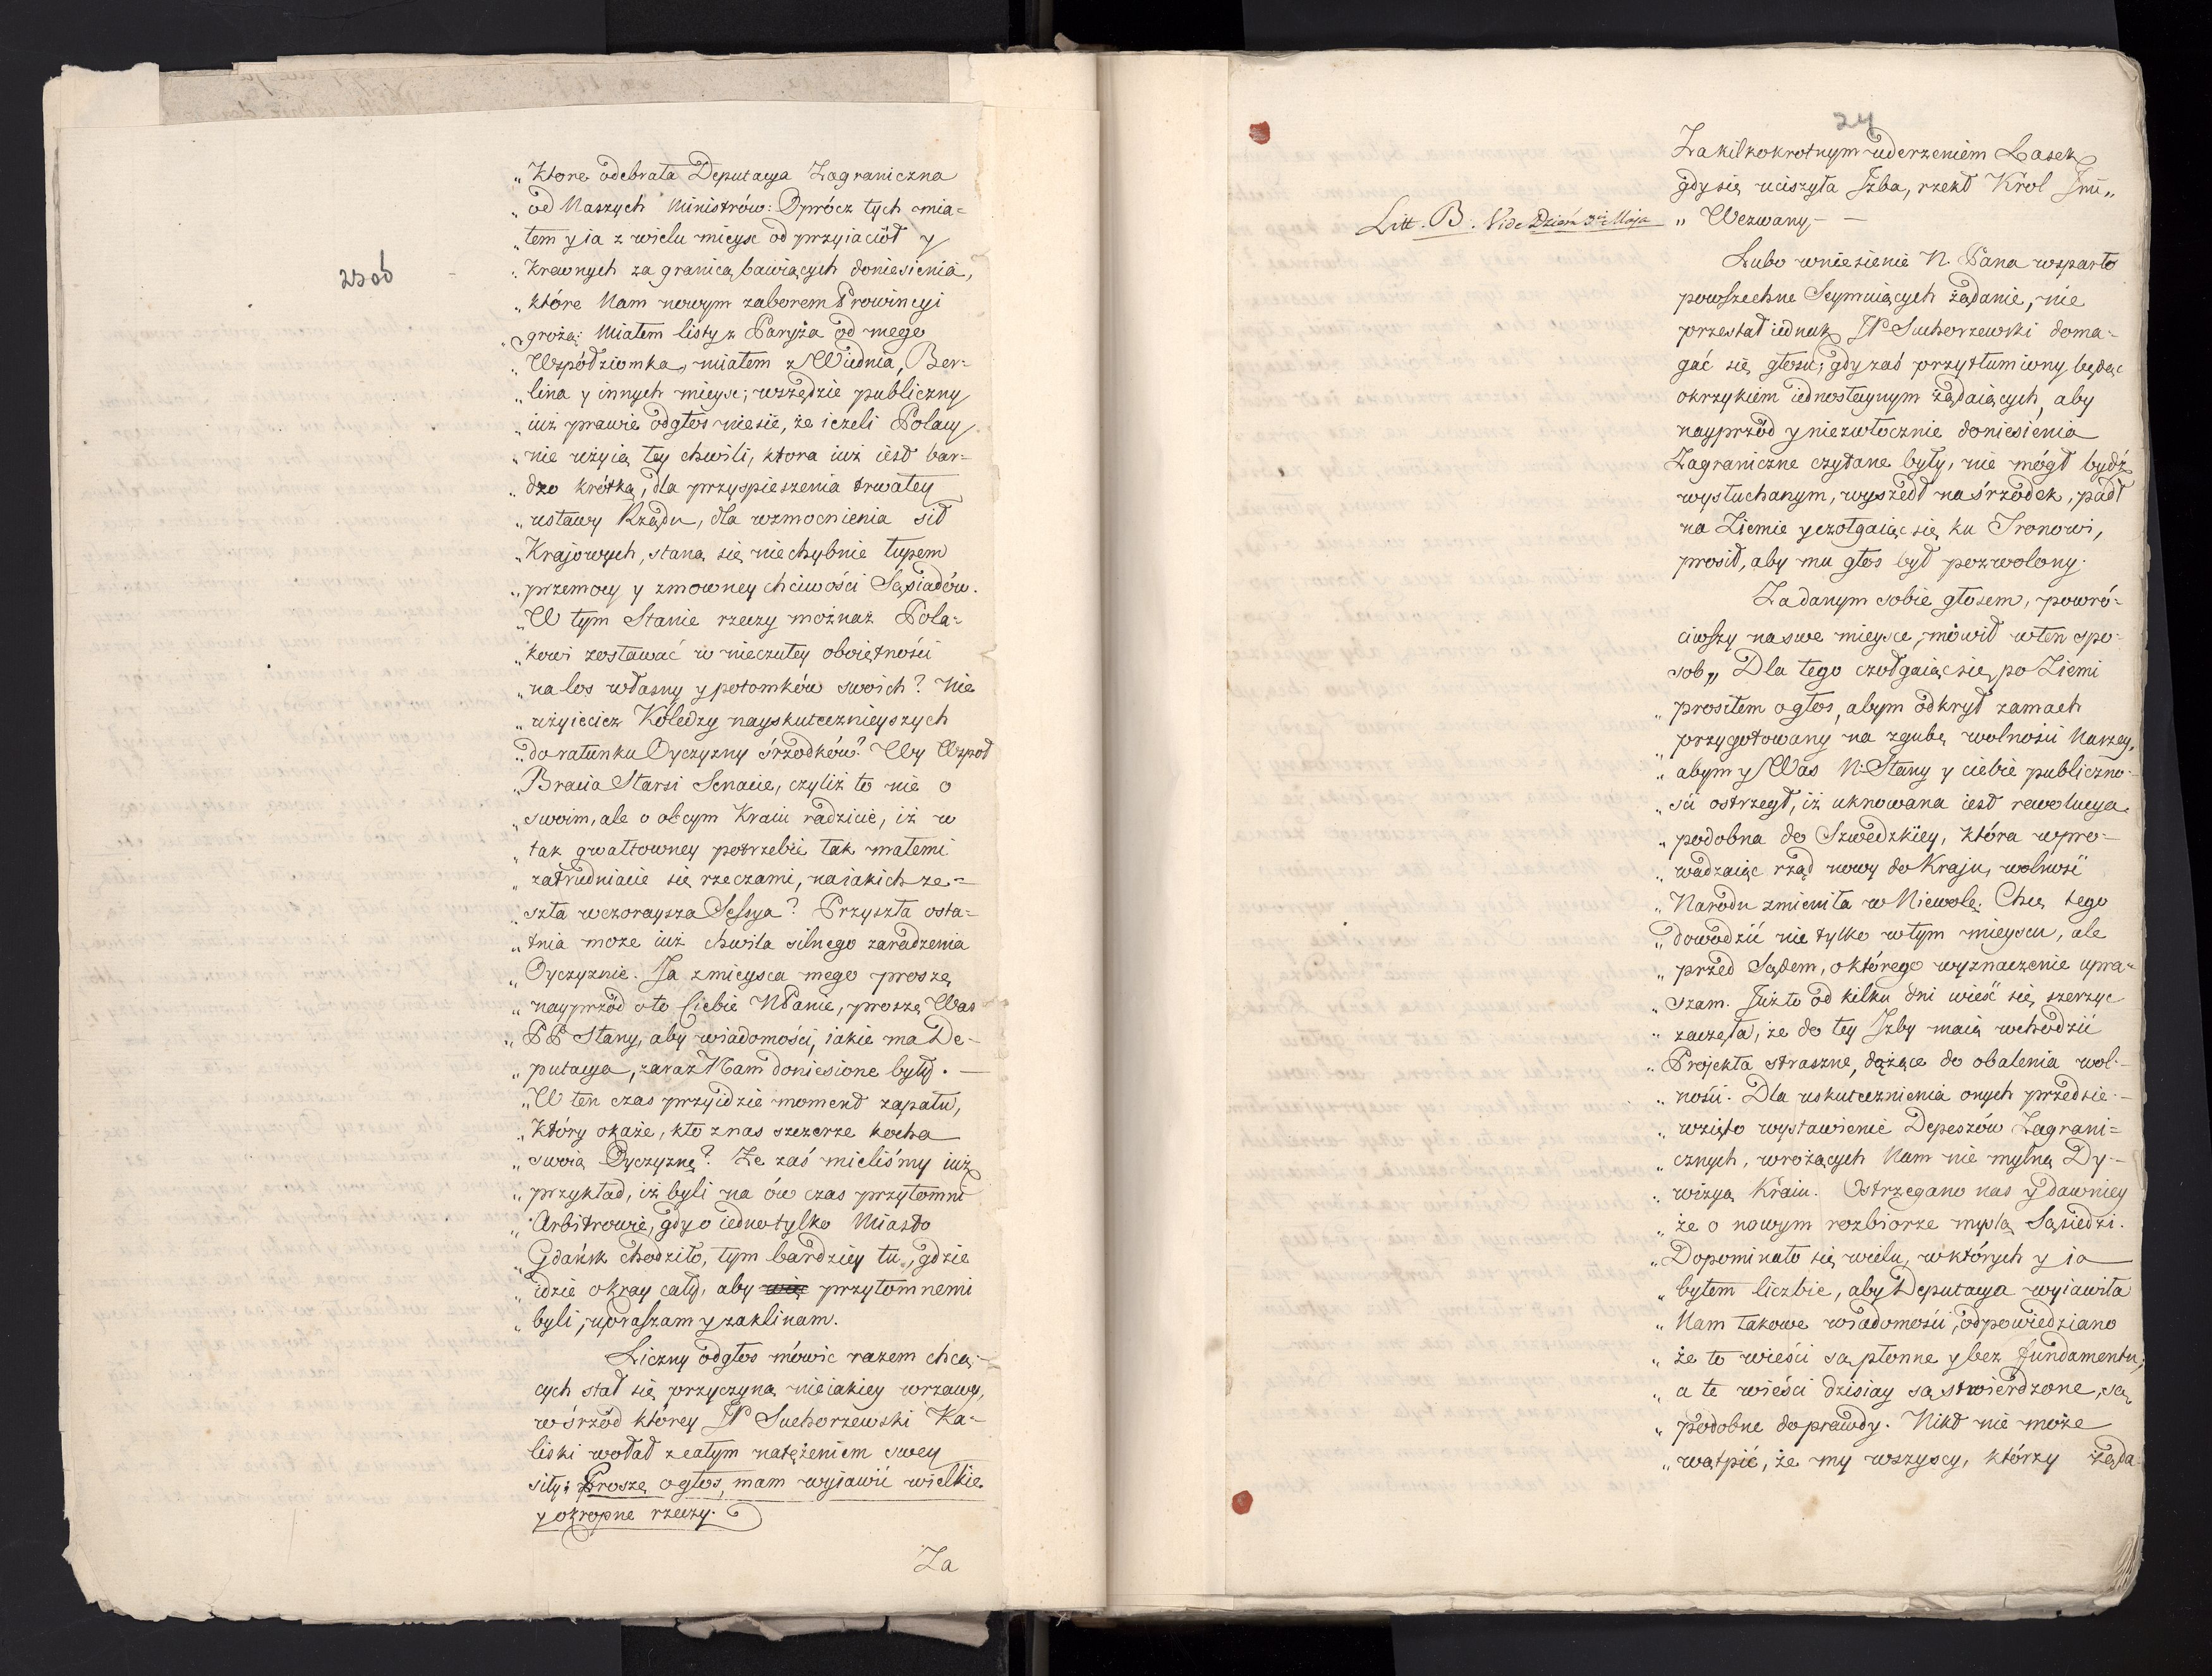 „ Ktore odebrała Deputacya Zagraniczna
„ od Naszych Ministrów: Oprócz tych mia=
„ łem y ia z wielu mieysc od przyiaciół y
„ Krewnych za granicą bawiących doniesienia,
„ które Nam nowym zaborem Prowincyi
„ grożą: Miałem listy z Paryża od mego
„ Wspódziomka, miałem z Wiednia, Ber=
„ lina y innych mieysc; wszędzie publiczny
„ iuż prawie odgłos niesie, że ieżeli Polacy
„ nie użyią tey chwili, ktora iuż iest bar=
„ dzo krótką, dla przyspieszenia trwałey
„ ustawy Rządu, dla wzmocnienia sił
„ Krajowych, staną się niechybnie łupem
„ przemocy y zmowney chciwości Sąsiadów.
„ W tym Stanie rzeczy możnaż Pola=
„ kowi zostawać w nieczułey oboiętności
„ na los własny y potomków swoich? Nie
„ użyiecież Koledzy nayskutecznieyszych
„ do ratunku Oyczyzny śrzodków? Wy Wspoł
„ Bracia Starsi Senacie, czyliż to nie o
„ swoim, ale o obcym Kraiu radzicie, iż w
„ tak gwałtowney potrzebie tak małemi
„ zatrudniacie się rzeczami, na iakich ze=
„ szła wczoraysza Sessya? Przyszła osta=
„ tnia może iuż chwila silnego zaradzenia
„ Oyczyznie. Ja z mieysca mego proszę
„ nayprzód o to Ciebie NPanie, proszę Was
„ PP Stany, aby wiadomości, iakie ma De=
„ putacya, zaraz Nam doniesione były. —
„ W ten czas przyidzie moment zapału,
„ Który okaże, kto z nas szczerze kocha
„ swoią Oyczyznę? Że zaś mieliśmy iuż
„ przykład, iż byli na ów czas przytomni
„ Arbitrowie, gdy o iedno tylko Miasto
„ Gdańsk chodziło, tym bardziey tu, gdzie
„ idzie o kray cały, aby przytomnemi
„ byli, upraszam y zaklinam.
Liczny odgłos mówic razem chcą=
cych stał się przyczyną nieiakiey wrzawy,
wśrzód którey JP Suchorzewski Ka=
liski wołał z całym natężeniem swey
siły: Proszę o głos, mam wyiawić wielkie
y okropne rzeczy.
Za
24
Za kilkokrotnym uderzeniem Lasek
gdy się uciszyła Jzba, rzekł Król Jmć „
Litt. B. Vide Dzień 3ci Maja „ Wezwany — —
Lubo wniesienie N. Pana wsparło
powszechne Seymuiących żądanie, nie
przestał iednak JP Suchorzewski doma=
gać się głosu; gdy zaś przytłumiony będąc
okrzykiem iednostaynym żądaiących, aby
nayprzód y niezwłocznie doniesienia
Zagraniczne czytane były, nie mógł bydź
wysłuchanym, wyszedł na śrzodek, padł
na Ziemie y czołgaiąc się ku Tronowi,
prosił, aby mu głos był pozwolony.
Za danym sobie głosem, powró=
ciwszy na swe mieysce, mówił w ten spo=
sob „ Dla tego czołgaiąc się po Ziemi
„ prosiłem o głos, abym odkrył zamach
„ przygotowany na zgubę wolności Naszey,
„ abym y Was N. Stany y ciebie publiczno=
„ ści ostrzegł, iż uknowana iest rewolucya
„ podobna do Szwedzkiey, która wpro=
„ wadzaiąc rząd nowy do Kraju, wolność
„ Narodu zmieniła w Niewolę. Chcę tego
„ dowodzić nie tylko w tym mieyscu, ale
„ przed Sądem, o którego wyznaczenie upra=
„ szam. Już to od kilku dni wieść się szerzyć
„ zaczęła, że do tey Jzby maią wchodzić
„ Projekta straszne, dążące do obalenia wol=
„ ności. Dla uskutecznienia onych przedsie=
„ wzięto wystawienie Depeszów Zagrani=
„ cznych, wróżących Nam nie mylną Dy=
„ wizyą Kraiu. Ostrzegano nas y dawniey
„ że o nowym rozbiorze myślą Sąsiedzi.
„ Dopominało się wielu, w których y ia
„ byłem liczbie, aby Deputacya wyiawiła
„ Nam takowe wiadomości; odpowiedziano
„ że to wieści są płonne y bez fundamentu,
„ a te wieści dzisiay są stwierdzone, są
„ podobne do prawdy. Nikt nie może
„ wątpić, że my wszyscy, którzy żąda